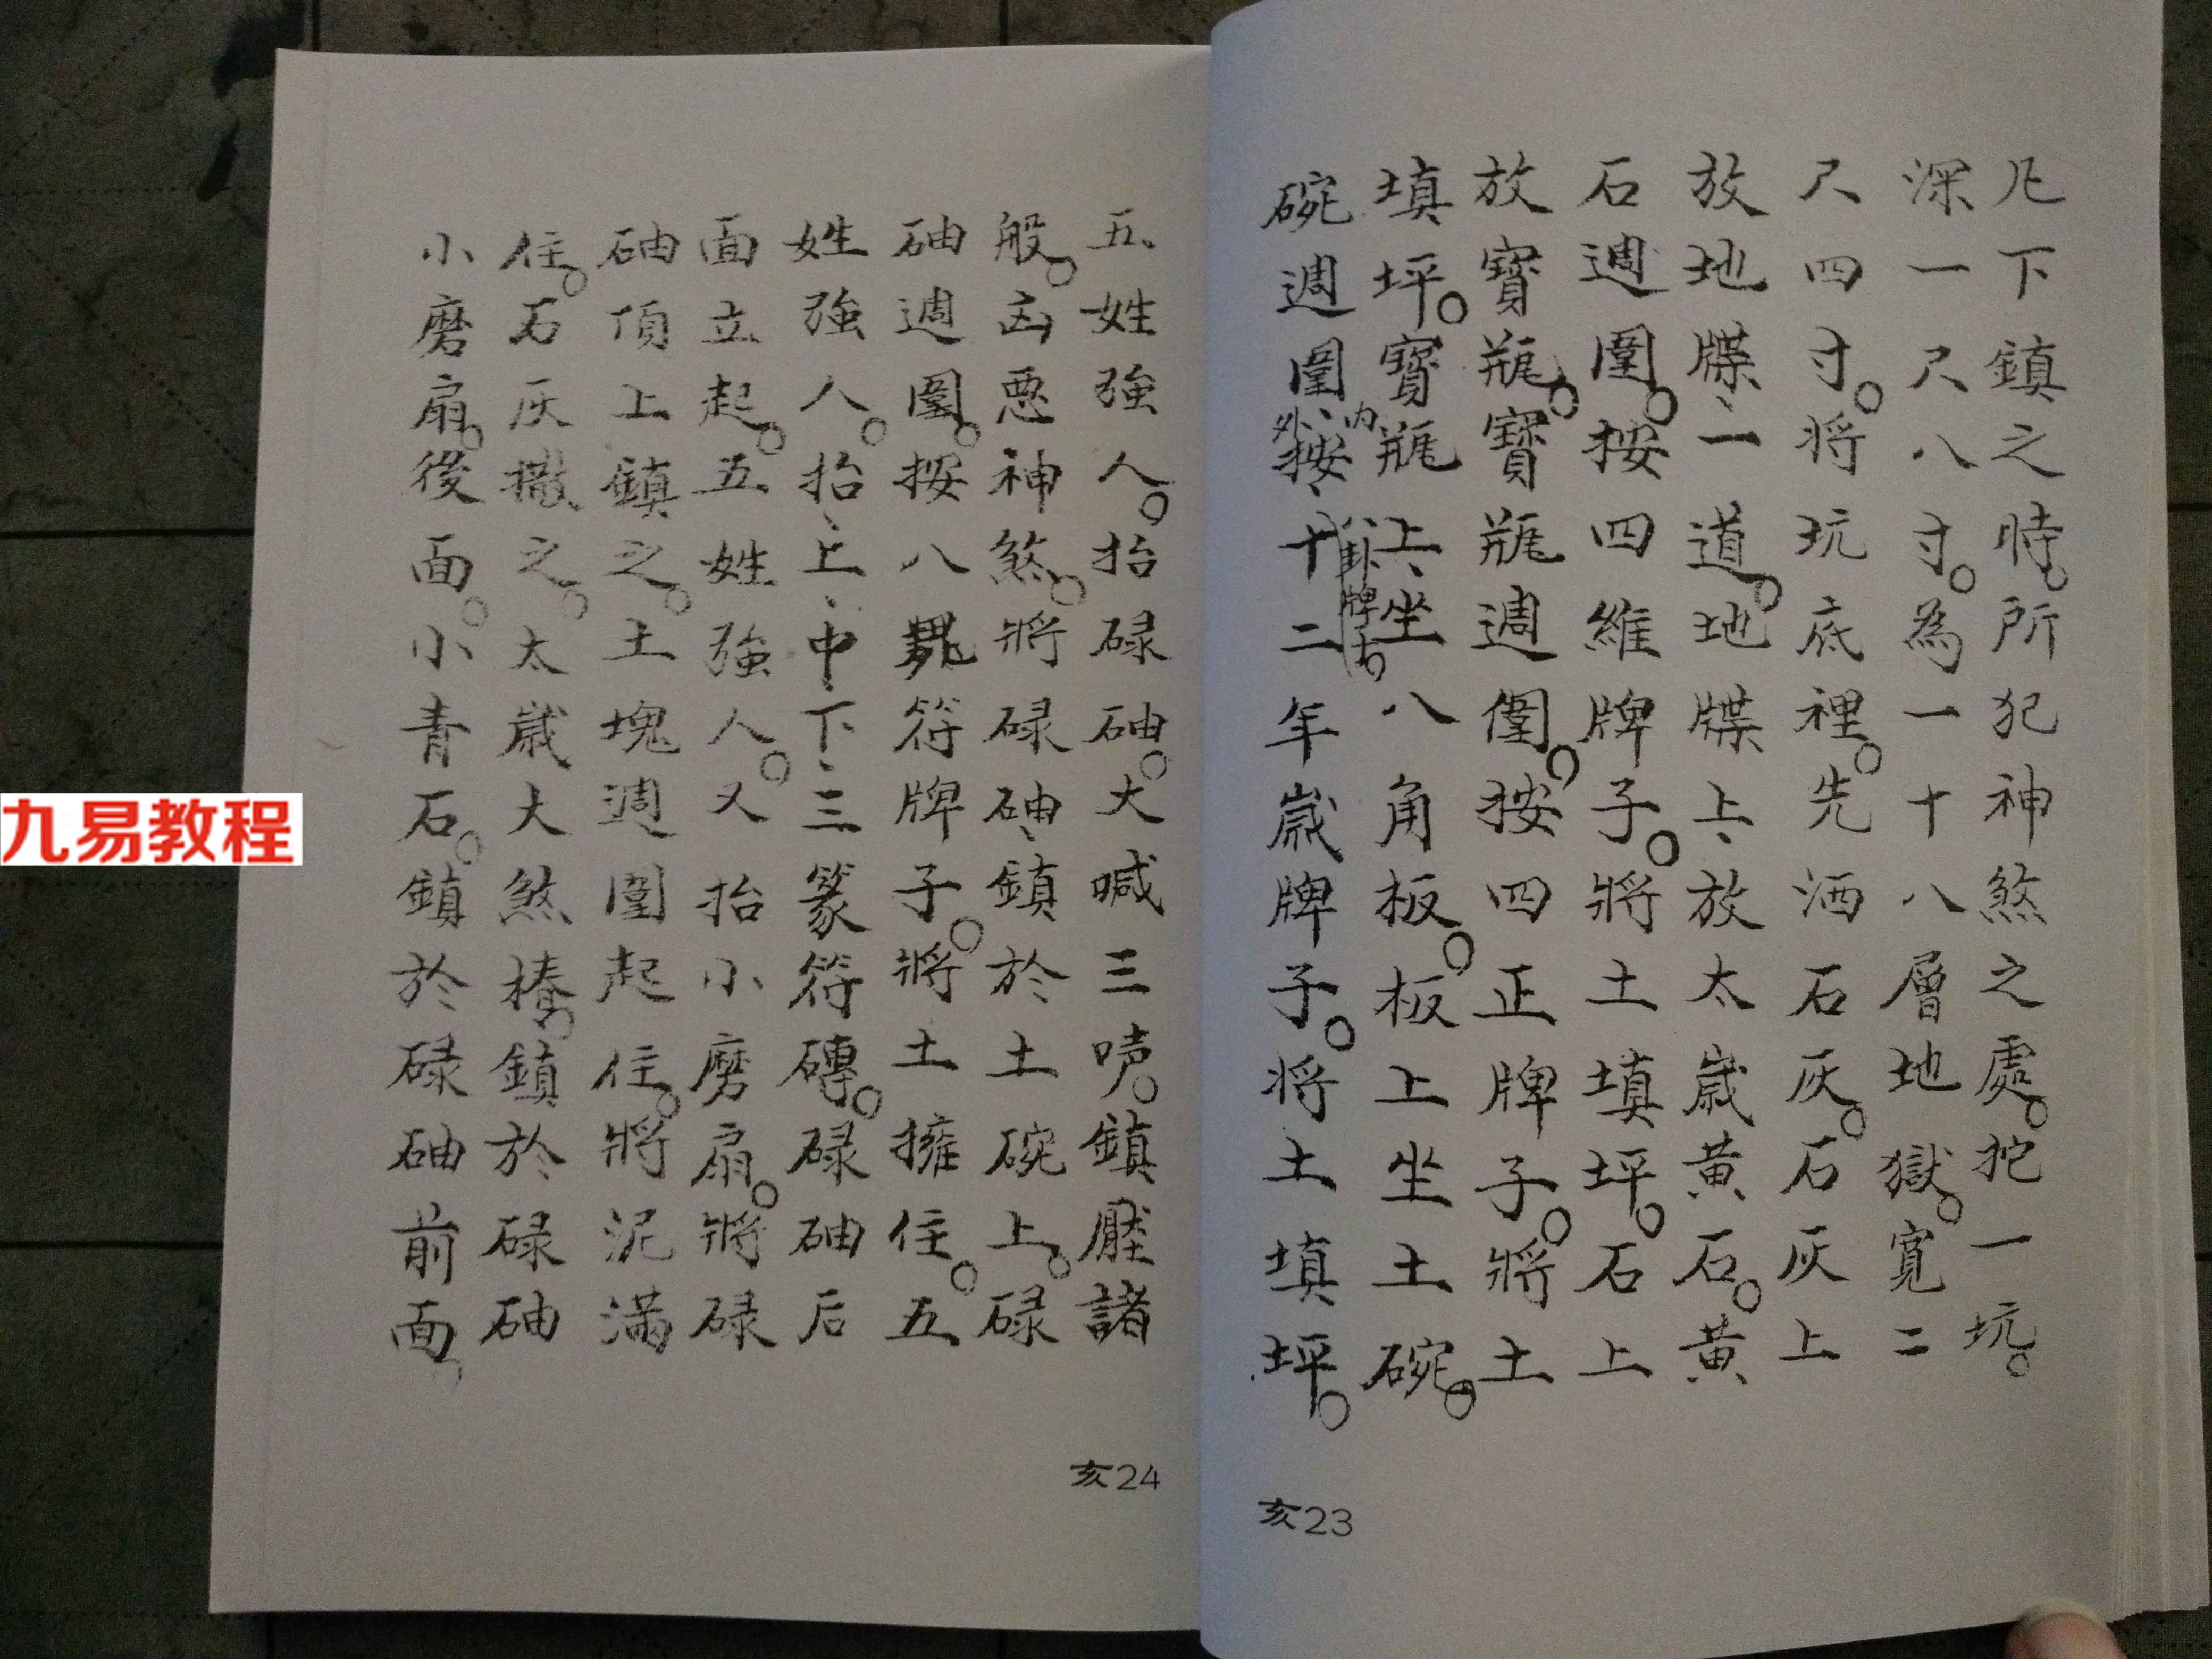 凡下鎮之時。所犯神煞之處。挖一坑。
深一尺八寸。為一十八層地獄。寬二
尺四寸。將坑底裡。先洒石灰。石灰上
放地牒一道。地牒上放太歲黃石。黃
石週圍。按四維牌子。將土填坪。石上
放寶瓶。寶瓶週圍。按四正牌子。將土
填坪。寶瓶上坐八角板。板上坐土碗。
碗週圍內
外按十二年歲牌子。將土填坪。
卦牌
亥23
五姓強人。抬碌砘。大喊三声。鎮壓諸
般凶悪神煞。將碌砘鎮於土碗上。碌
砘週圍。按八卦符牌子。將土擁住。五
姓強人。抬上中下三篆符磚。碌砘后
面立起。五姓強人。又抬小磨扇。將碌
砘頂上鎮之。土塊週圍起住。將泥满
住。石灰撒之。太歲大煞樁。鎮於碌砘
小磨扇。後面。小青石。鎮於碌砘前面。
亥24
九易教程